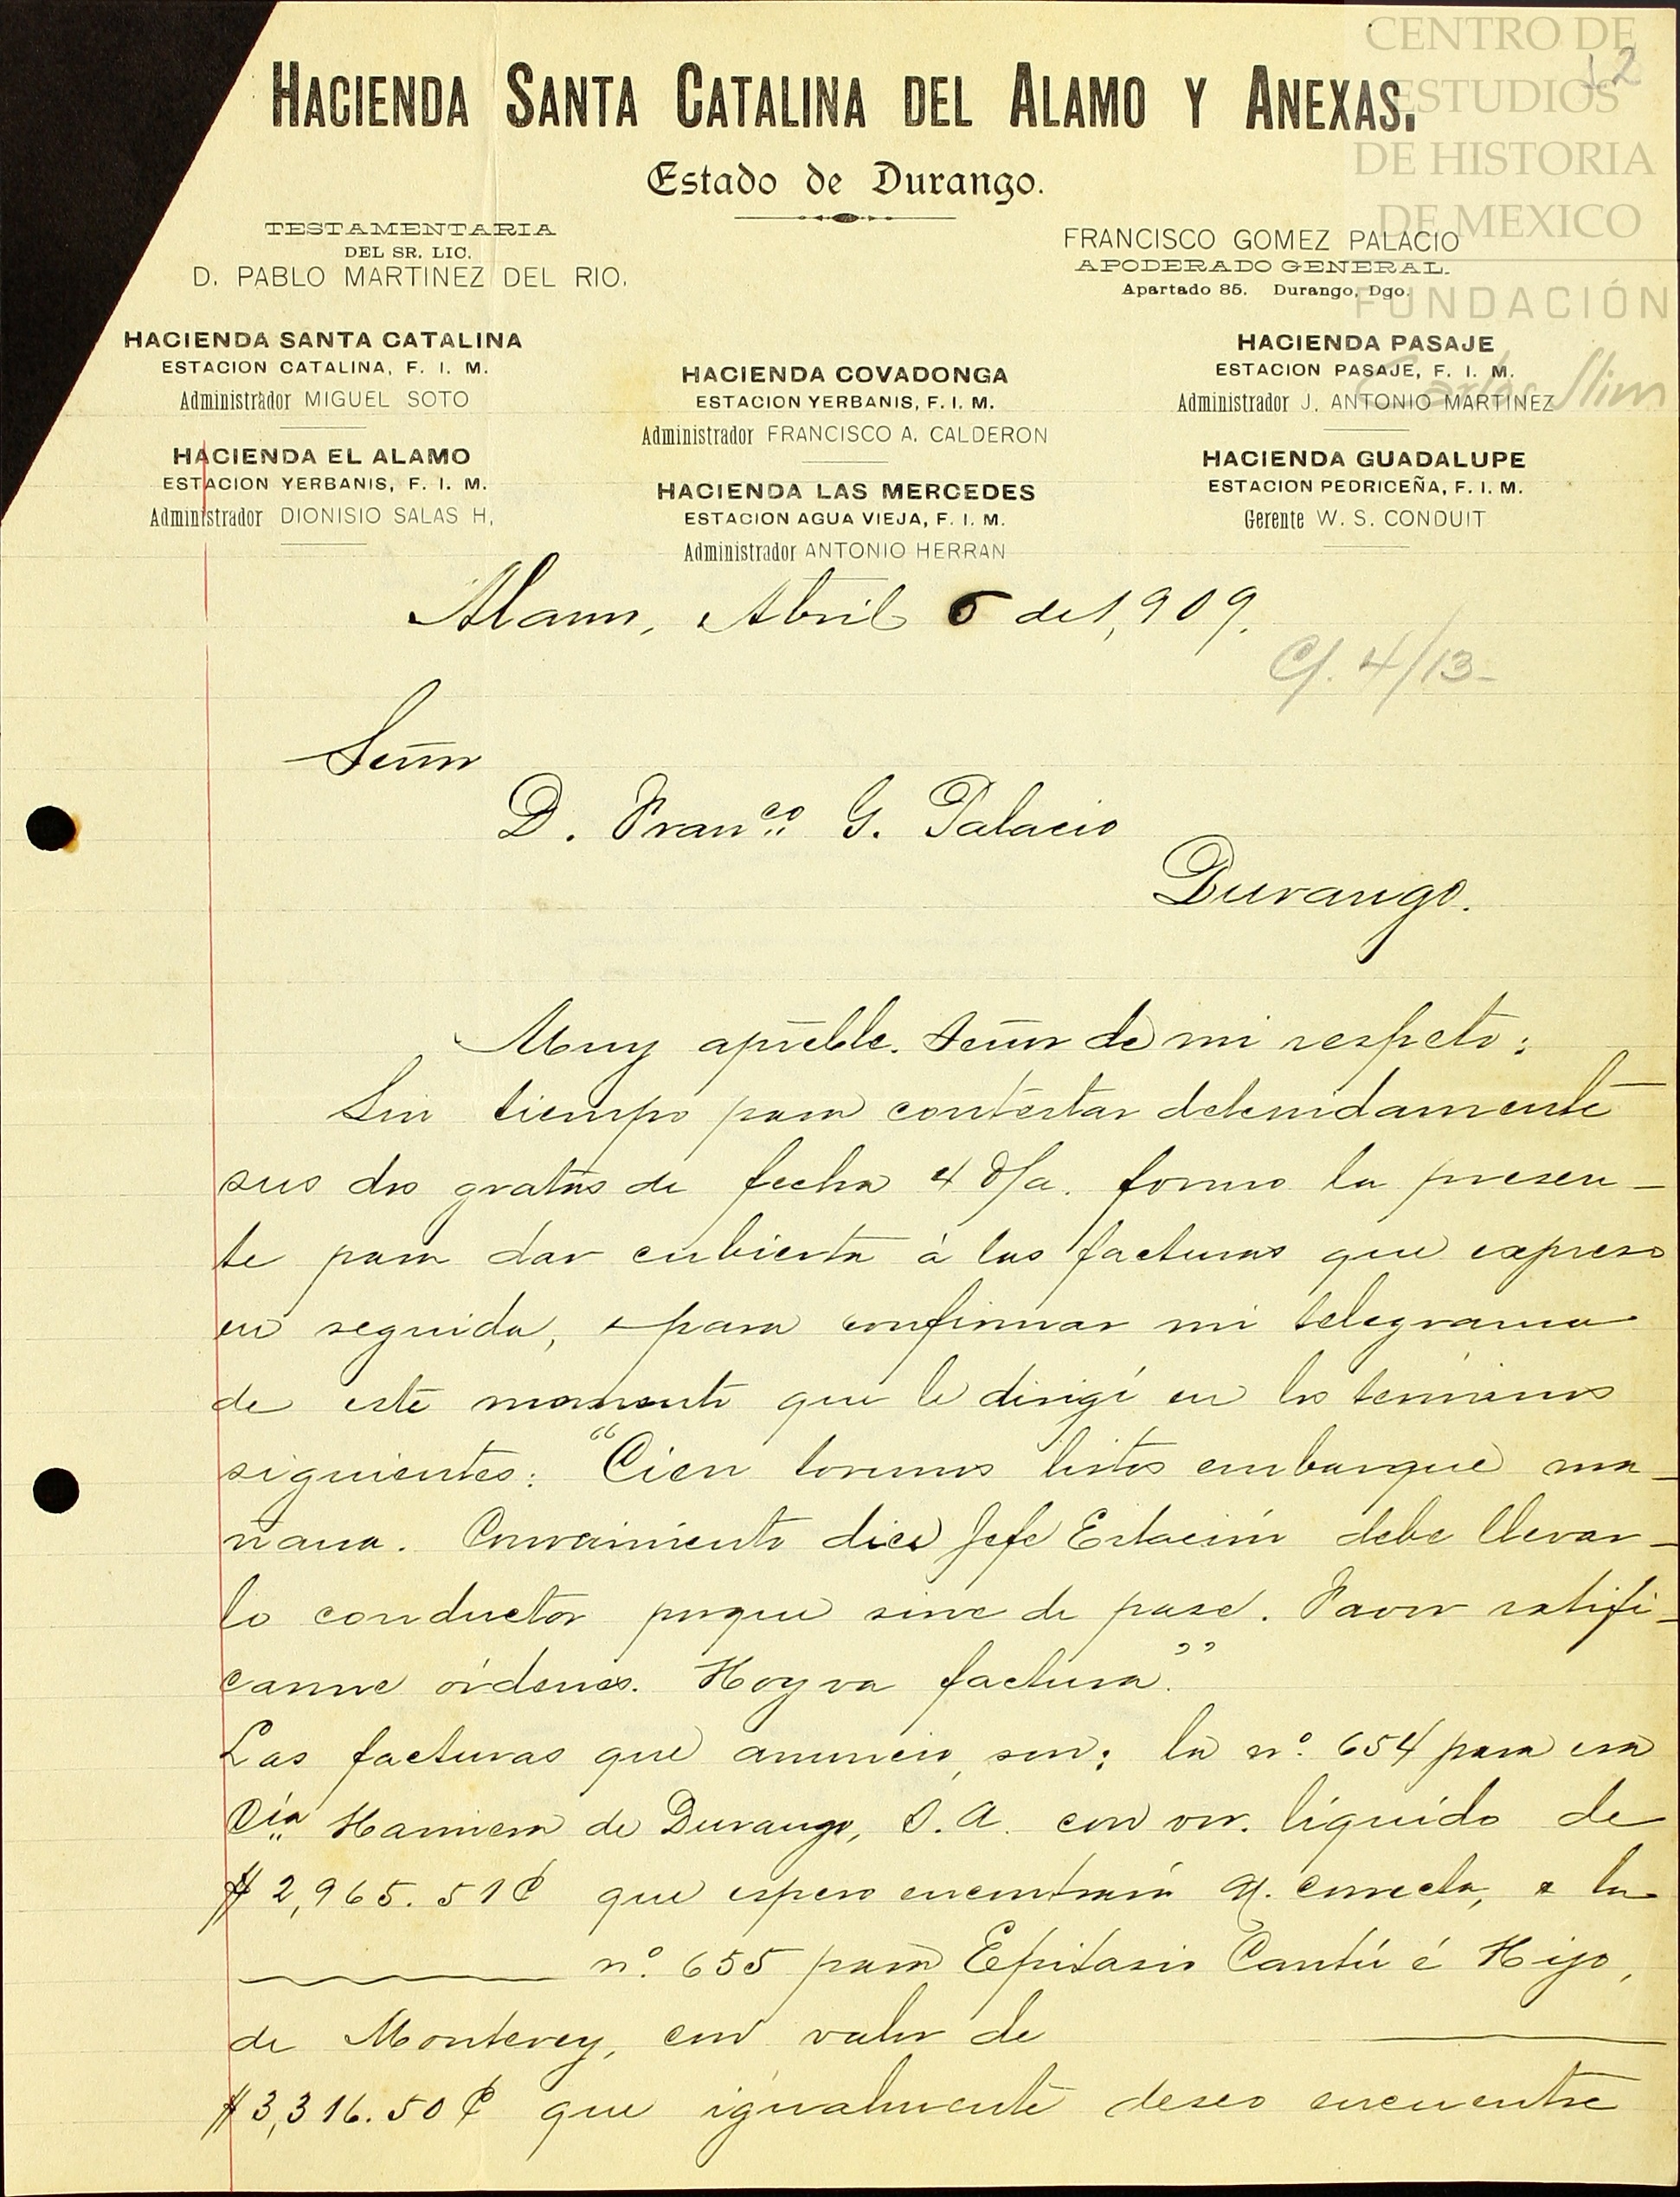 CENTRO DE
ESTUDIOS
DE HISTORIA
DE MEXICO
FUNDACIÓN
Carlos Slim
12
HACIENDA SANTA CATALINA DEL ALAMO Y ANEXAS.
Estado de Durango.
TESTAMENTARIA
DEL SR. LIC.
D. PABLO MARTINEZ DEL RIO.
FRANCISCO GOMEZ PALACIO
APODERADO GENERAL.
Apartado 85. Durango, Dgo.
HACIENDA SANTA CATALINA
ESTACION CATALINA, F. I. M.
Administrador MIGUEL SOTO
HACIENDA EL ALAMO
ESTACION YERBANIS, F. I. M.
Administrador DIONISIO SALAS H.
HACIENDA COVADONGA
ESTACION YERBANIS, F. I. M.
Administrador FRANCISCO A. CALDERON
HACIENDA LAS MERCEDES
ESTACION AGUA VIEJA, F. I. M.
Administrador ANTONIO HERRAN
HACIENDA PASAJE
ESTACION PASAJE, F. I. M.
Administrador J. ANTONIO MARTINEZ
HACIENDA GUADALUPE
ESTACION PEDRICEÑA, F. I. M.
Gerente W. S. CONDUIT
Alamo, Abril 6 de 1,909.
C/. 4/13-
Señor
D. Franco G. Palacio
Durango.
Muy apreble. Señor de mi respeto:
Sin tiempo para contestar detenidamente
sus dos gratas de fecha 4 d/a. formo la presen-
te para dar cubierta á las facturas que expreso
en seguida, y para confirmar mi telegrama
de este momento que le dirigí en los términos
siguientes: "Cien torunos listos embarque ma-
ñana. Conocimiento dice Jefe Estación debe llevar-
lo conductor porque sirve de pase. Favor ratifi-
carme órdenes. Hoy va factura."
Las facturas que anuncio, son: la no. 654 para esa
Cía Harinera de Durango, S. A. con vor. líquido de
$2,965.51¢ que espero encontrará U. correcta, y la
no. 655 para Epitasio Cantú é Hijo,
de Monterey, con valor de
$3,316.50¢ que igualmente deseo encuentre